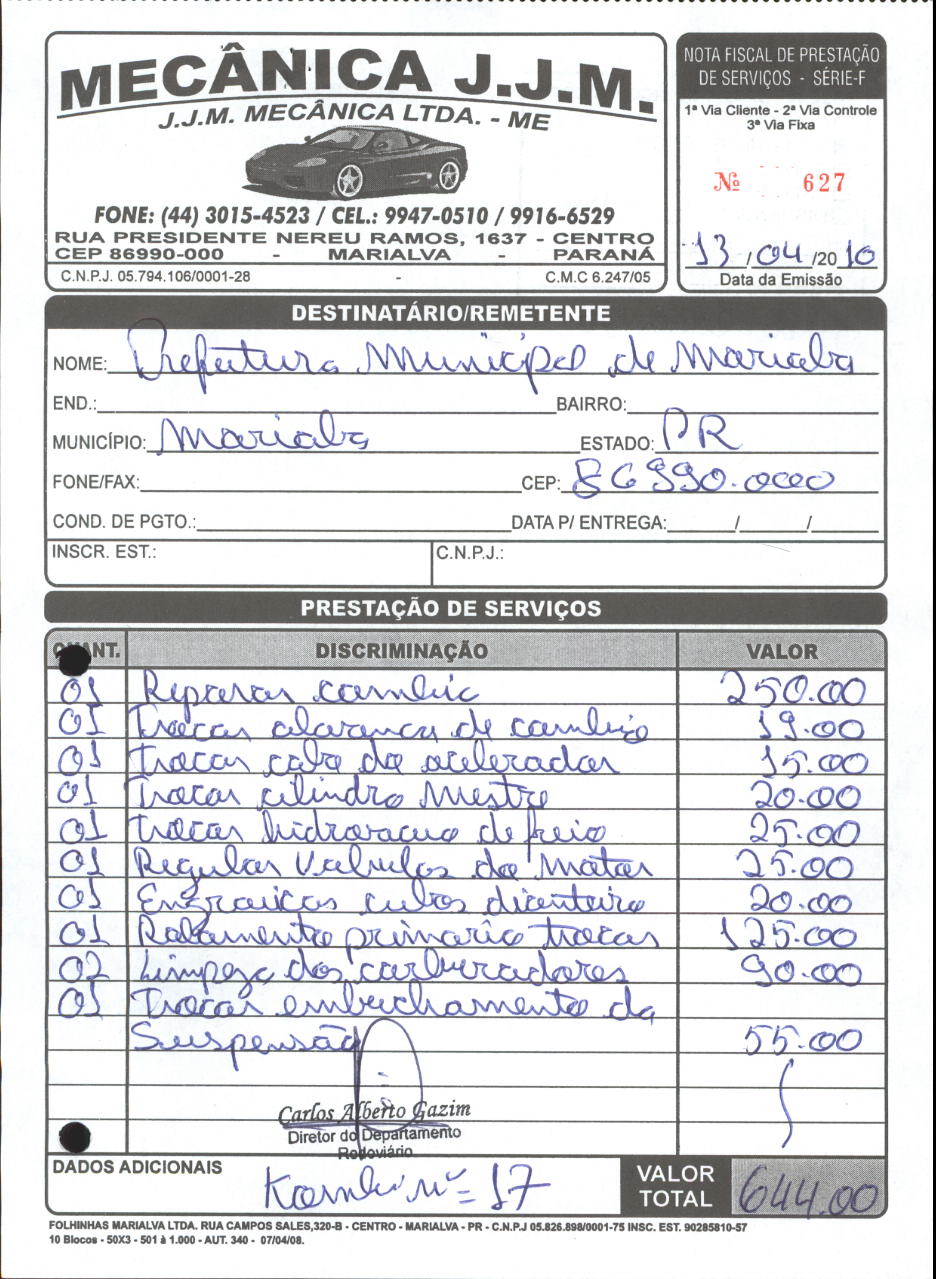 MECÂNICA J.J.M.
J.J.M. MECÂNICA LTDA. - ME
FONE: (44) 3015-4523 / CEL.: 9947-0510 / 9916-6529
RUA PRESIDENTE NEREU RAMOS, 1637 - CENTRO
CEP 86990-000 - MARIALVA - PARANÁ
C.N.P.J. 05.794.106/0001-28 - C.M.C 6.247/05
NOTA FISCAL DE PRESTAÇÃO
DE SERVIÇOS - SÉRIE-F
1ª Via Cliente - 2ª Via Controle
3ª Via Fixa
Nº 627
13/04/2010
Data da Emissão
DESTINATÁRIO/REMETENTE
NOME: Prefeitura Municipal de Marialva
END.: BAIRRO:
MUNICÍPIO: Marialva ESTADO: PR
FONE/FAX: CEP: 86990.000
COND. DE PGTO.: DATA P/ ENTREGA: / /
INSCR. EST.: C.N.P.J.:
PRESTAÇÃO DE SERVIÇOS
QUANT. DISCRIMINAÇÃO VALOR
01 Reparar cambio 250.00
01 Trocar alavanca de cambio 19.00
01 Trocar cabo do acelerador 15.00
01 Trocar cilindro Mestre 20.00
01 Trocar hidrovacuo de freio 25.00
01 Regular Valvulas do Motor 25.00
01 Engraixar cubos dianteiro 20.00
01 Rolamento primario trocar 125.00
02 Limpeza dos carburadores 90.00
01 Trocar embuchamento da
Suspensão 55.00
Carlos Alberto Gazim
Diretor do Departamento
Rodoviário
DADOS ADICIONAIS
Kombi nº = 17
VALOR
TOTAL 644.00
FOLHINHAS MARIALVA LTDA. RUA CAMPOS SALES,320-B - CENTRO - MARIALVA - PR - C.N.P.J 05.826.898/0001-75 INSC. EST. 90285810-57
10 Blocos - 50X3 - 501 à 1.000 - AUT. 340 - 07/04/08.